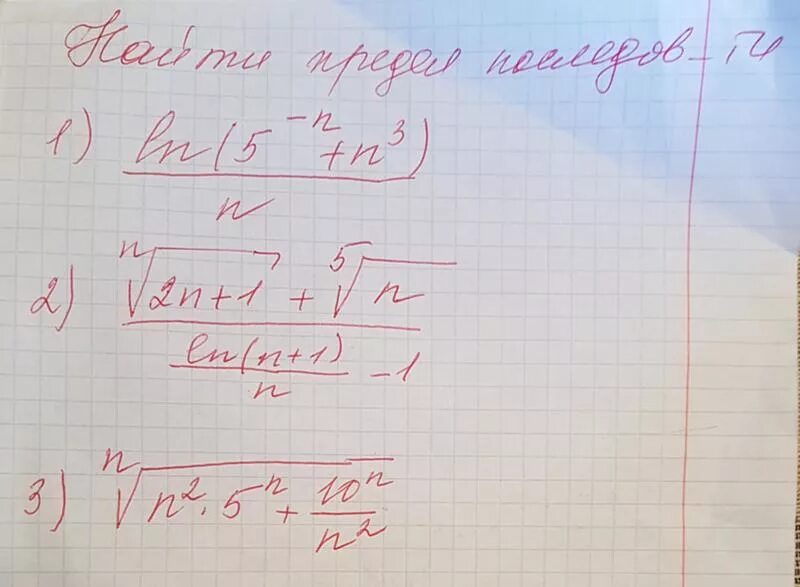 Найти предел последов-ти
1) ln(5^{-n} + n^3) / n
2) (\sqrt[n]{2n+1} + \sqrt[5]{n}) / (ln(n+1)/n - 1)
3) \sqrt[n]{n^2 · 5^n + 10^n/n^2}